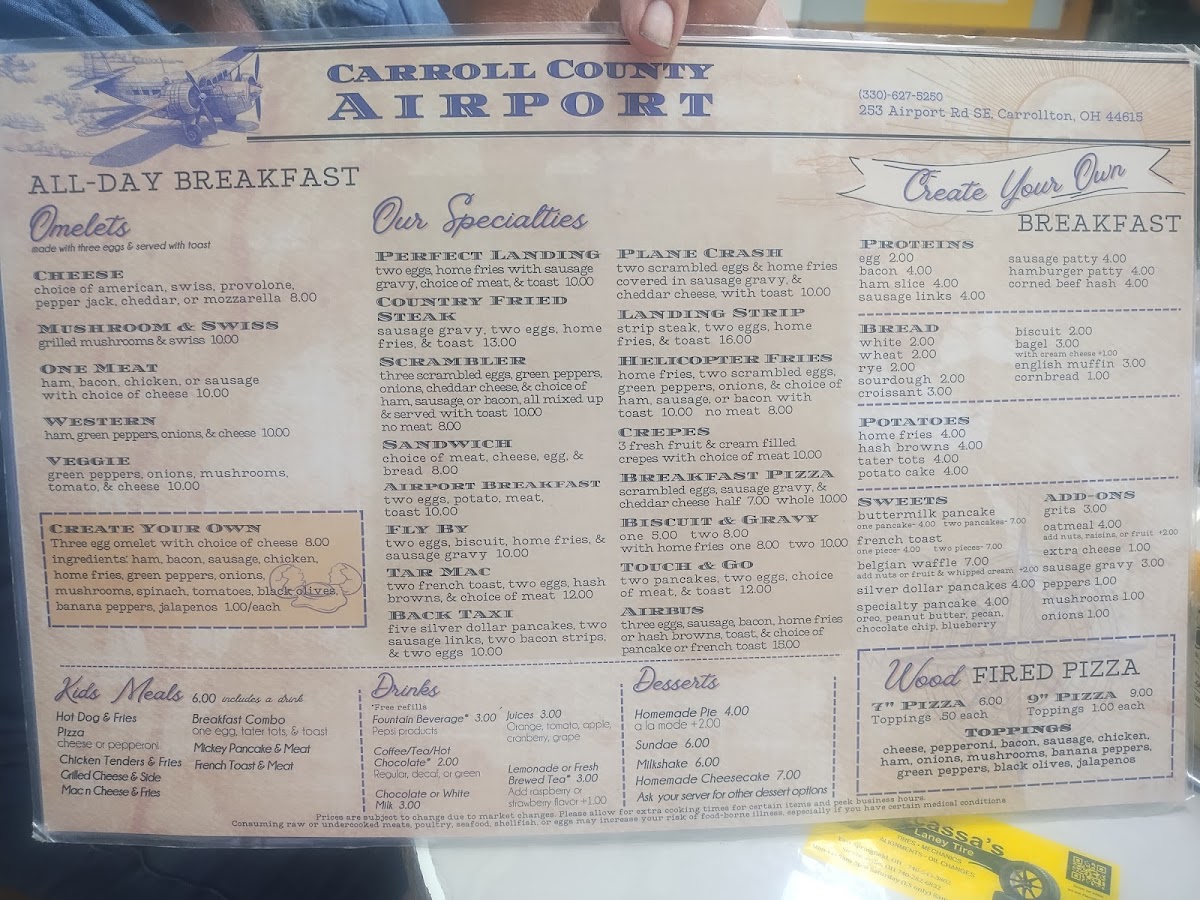 CARROLL COUNTY
AIRPORT
(330)-627-5250
253 Airport Rd SE, Carrollton, OH 44615
ALL-DAY BREAKFAST
Omelets
made with three eggs & served with toast
CHEESE
choice of american, swiss, provolone,
pepper jack, cheddar, or mozzarella 8.00
MUSHROOM & SWISS
grilled mushrooms & swiss 10.00
ONE MEAT
ham, bacon, chicken, or sausage
with choice of cheese 10.00
WESTERN
ham, green peppers, onions, & cheese 10.00
VEGGIE
green peppers, onions, mushrooms,
tomato, & cheese 10.00
CREATE YOUR OWN
Three egg omelet with choice of cheese 8.00
ingredients: ham, bacon, sausage, chicken,
home fries, green peppers, onions,
mushrooms, spinach, tomatoes, black olives,
banana peppers, jalapenos 1.00/each
Our Specialties
PERFECT LANDING
two eggs, home fries with sausage
gravy, choice of meat, & toast 10.00
COUNTRY FRIED
STEAK
sausage gravy, two eggs, home
fries, & toast 13.00
SCRAMBLER
three scrambled eggs, green peppers,
onions, cheddar cheese, & choice of
ham, sausage, or bacon, all mixed up
& served with toast 10.00
no meat 8.00
SANDWICH
choice of meat, cheese, egg, &
bread 8.00
AIRPORT BREAKFAST
two eggs, potato, meat,
toast 10.00
FLY BY
two eggs, biscuit, home fries, &
sausage gravy 10.00
TAR MAC
two french toast, two eggs, hash
browns, & choice of meat 12.00
BACK TAXI
five silver dollar pancakes, two
sausage links, two bacon strips,
& two eggs 10.00
PLANE CRASH
two scrambled eggs & home fries
covered in sausage gravy, &
cheddar cheese, with toast 10.00
LANDING STRIP
strip steak, two eggs, home
fries, & toast 16.00
HELICOPTER FRIES
home fries, two scrambled eggs,
green peppers, onions, & choice of
ham, sausage, or bacon with
toast 10.00 no meat 8.00
CREPES
3 fresh fruit & cream filled
crepes with choice of meat 10.00
BREAKFAST PIZZA
scrambled eggs, sausage gravy, &
cheddar cheese half 7.00 whole 10.00
BISCUIT & GRAVY
one 5.00 two 8.00
with home fries one 8.00 two 10.00
TOUCH & GO
two pancakes, two eggs, choice
of meat, & toast 12.00
AIRBUS
three eggs, sausage, bacon, home fries
or hash browns, toast, & choice of
pancake or french toast 15.00
Create Your Own
BREAKFAST
PROTEINS
egg 2.00
bacon 4.00
ham slice 4.00
sausage links 4.00
sausage patty 4.00
hamburger patty 4.00
corned beef hash 4.00
BREAD
white 2.00
wheat 2.00
rye 2.00
sourdough 2.00
croissant 3.00
biscuit 2.00
bagel 3.00
with cream cheese +1.00
english muffin 3.00
cornbread 1.00
POTATOES
home fries 4.00
hash browns 4.00
tater tots 4.00
potato cake 4.00
SWEETS
buttermilk pancake
one pancake- 4.00 two pancakes- 7.00
french toast
one piece- 4.00 two pieces- 7.00
belgian waffle 7.00
add nuts or fruit & whipped cream +2.00
silver dollar pancakes 4.00
specialty pancake 4.00
oreo, peanut butter, pecan,
chocolate chip, blueberry
ADD-ONS
grits 3.00
oatmeal 4.00
add nuts, raisins, or fruit +2.00
extra cheese 1.00
sausage gravy 3.00
peppers 1.00
mushrooms 1.00
onions 1.00
Kids Meals 6.00 includes a drink
Hot Dog & Fries
Pizza
cheese or pepperoni
Chicken Tenders & Fries
Grilled Cheese & Side
Mac n Cheese & Fries
Breakfast Combo
one egg, tater tots, & toast
Mickey Pancake & Meat
French Toast & Meat
Drinks
*Free refills
Fountain Beverage* 3.00
Pepsi products
Coffee/Tea/Hot
Chocolate* 2.00
Regular, decaf, or green
Chocolate or White
Milk 3.00
Juices 3.00
Orange, tomato, apple,
cranberry, grape
Lemonade or Fresh
Brewed Tea* 3.00
Add raspberry or
strawberry flavor +1.00
Desserts
Homemade Pie 4.00
a la mode +2.00
Sundae 6.00
Milkshake 6.00
Homemade Cheesecake 7.00
Ask your server for other dessert options
Wood FIRED PIZZA
7" PIZZA 6.00
Toppings .50 each
9" PIZZA 9.00
Toppings 1.00 each
TOPPINGS
cheese, pepperoni, bacon, sausage, chicken,
ham, onions, mushrooms, banana peppers,
green peppers, black olives, jalapenos
Prices are subject to change due to market changes. Please allow for extra cooking times for certain items and peek business hours.
Consuming raw or undercooked meats, poultry, seafood, shellfish, or eggs may increase your risk of food-borne illness, especially if you have certain medical conditions
assa's
Laney Tire
TIRES • MECHANICS
ALIGNMENTS • OIL CHANGES